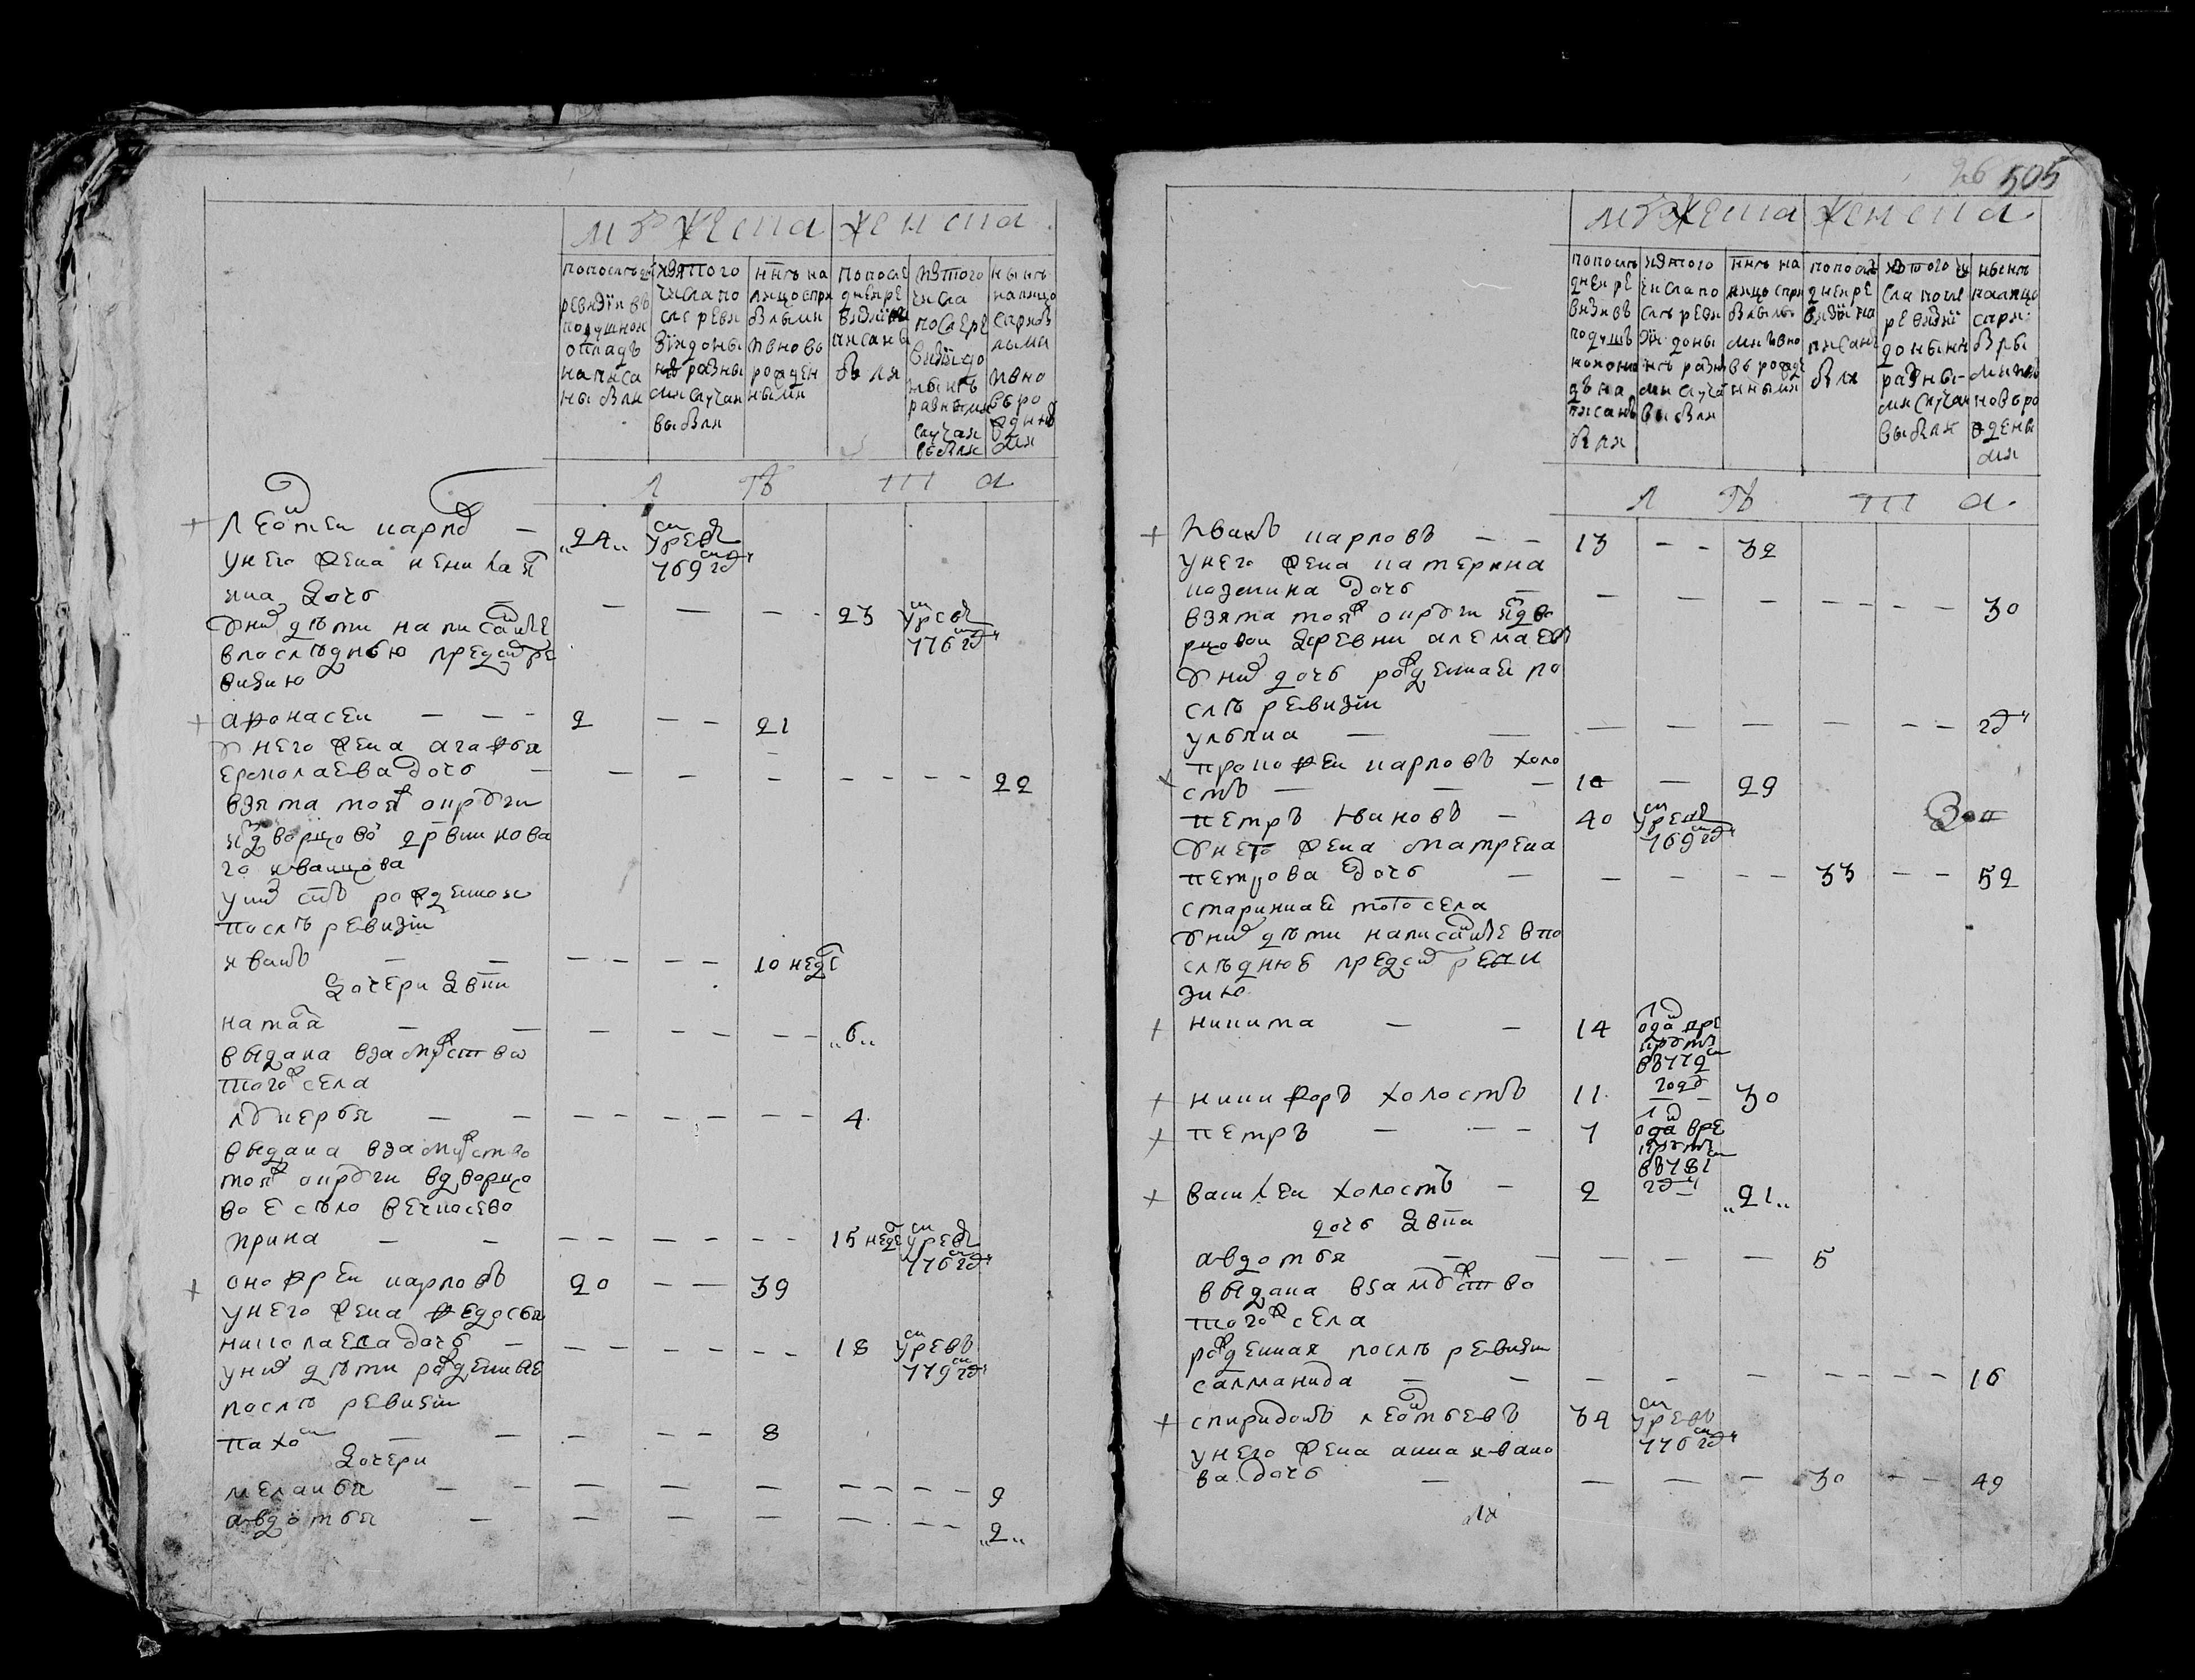 мужеска женска
попослѣдней ревизіи въ подушной окладъ написаны были
изтого числа после ревизіи донынѣ разными случаи выбыли
ннѣ налицо сприбылыми ивновь рожденными
попоследней ревизіи написаны были
изтого числа послѣ ревизіи донынѣ разными случаи выбыли
нынѣ налицо сприбылыми ивновь рожденными
л ѣ т а
+ Леонтей карпов — 24 умре въ 769 гд
унего жена ненила я
кла дочь — — — — 23 умре въ 776 гд
у них дѣти написанные
впоследнею пред сим ре
визию
+ афонасеи — — — 2 — — 21
У него жена агафья
ермолаева дочь — — — — — — — — 22
взята тоя ж округи
из дворцовой дрвни нова
го иванцова
у них снъ рожденнои
послѣ ревизіи
иванъ — — — — — — 10 недѣ
дочери двки
натаа — — — — — — — 6
выдана взамужство
того ж села
лукерья — — — — — — — 4
выдана взамужство
тоя ж округи вдворцо
вое село вечкосево
ирина — — — — — — — 15 неде умре въ 776 гд
+ онофреи карповъ 20 — — 39
унего жена федосья
николаева дочь — — — — — — — 18 умре въ 779 гд
у них дѣти рожденные
послѣ ревизіи
пахом — — — — — 8
дочери
меланья — — — — — — — — — 9
авдотья — — — — — — — — 2
26 505
мужеска женска
попослѣдней ревизіи въ подушномъ окладѣ написаны были
изтого числа послѣ ревизіи донынѣ разными случаи выбыли
ннѣ налицо сприбылыми ивновь рожденными
попоследней ревизіи написаны были
изтого числа послѣ ревизіи донынѣ разными случаи выбыли
нынѣ налицо сприбылыми ивновь рожденными
л ѣ т а
+ Иванъ карповъ — — 13 — — 32
унего жена катерина
козмина дочь — — — — — — — — 30
взята тоя ж округи из дво
рцовои деревни алемаевы
У них дочь рожденная по
слѣ ревизіи
ульяна — — — — — — — — гд
+ прокофеи карповъ холо
стъ — — — 10 — 29
петръ Ивановъ — 40 умре въ 769 гд
У него жена матрена
петрова дочь — — — — — 33 — — 52
стариннаго того села
У них дѣти написанные впо
слѣднюю пред сим реви
зию
+ никита — — 14 отдан в рекруты въ 772 году
+ никифоръ холостъ 11 — — 30
+ петръ — — — 7 отдан в рекруты въ 781 гд
+ василеи холостъ — 2 21
дочь двка
авдотья — — — — — 5
выдана взамужство
того ж села
рожденная послѣ ревизіи
салманида — — — — — — — — — 16
+ спиридонъ леонтьевъ 32 умре въ 776 гд
унего жена анна ивано
ва дочь — — — — 30 — — 49